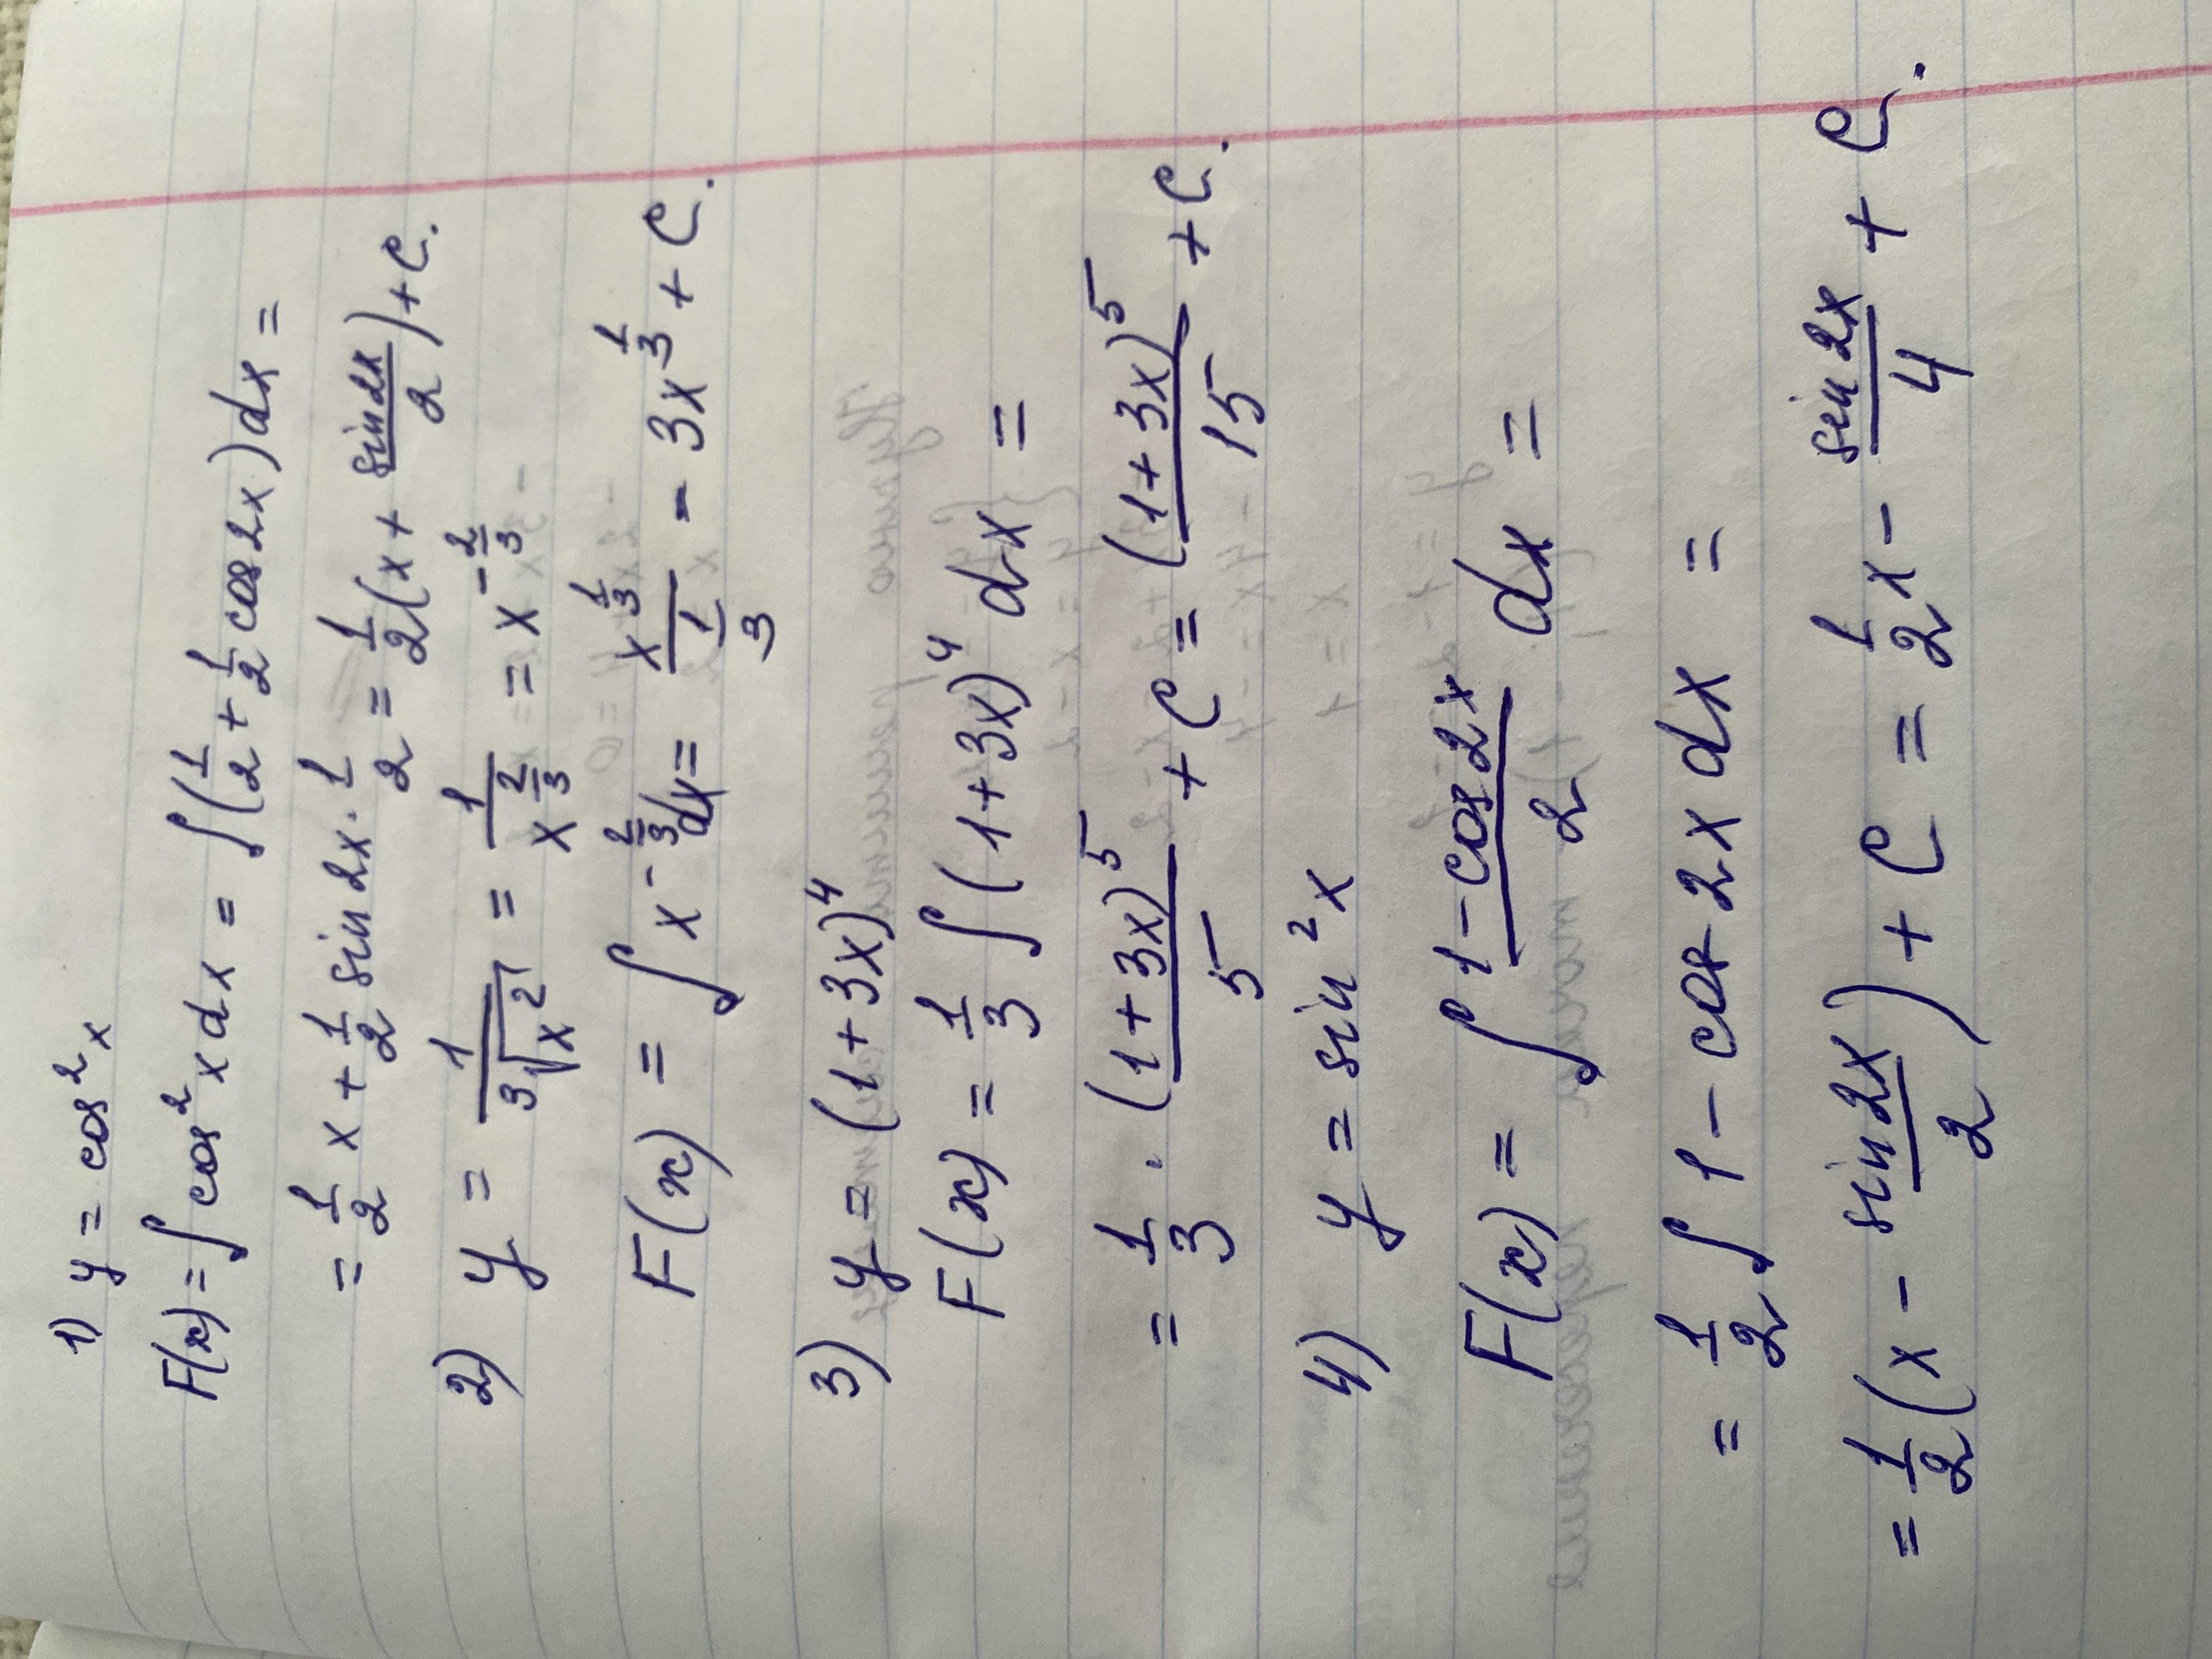 1) y = cos²x
F(x) = ∫cos²x dx = ∫(1/2 + 1/2 cos 2x) dx =
= 1/2 x + 1/2 sin 2x · 1/2 = 1/2(x + sin 2x/2) + C.
2) y = 1/∛x² = 1/x^(2/3) = x^(-2/3)
F(x) = ∫ x^(-2/3) dx = x^(1/3)/(1/3) - 3x^(1/3) + C.
3) y = (1 + 3x)⁴
F(x) = 1/3 ∫ (1 + 3x)⁴ dx =
= 1/3 · (1 + 3x)⁵/5 + C = (1 + 3x)⁵/15 + C.
4) y = sin²x
F(x) = ∫ 1 - cos 2x/2 dx =
= 1/2 ∫ 1 - cos 2x dx =
= 1/2(x - sin 2x/2) + C = 1/2 x - sin 2x/4 + C.